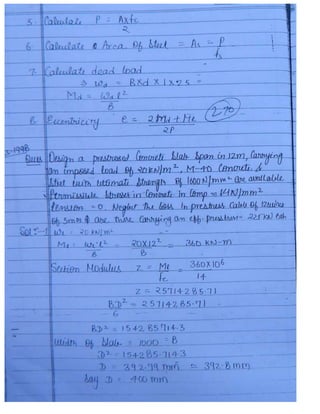 5. Calculate P = A×fc
2
6. Calculate Area Of Steel = As = P
fs
7. Calculate dead load
⇒ wd = B×d×1×25 =
Md = wd l²
8
8. Eccentricity e = 2Md + ML
2P
270
1998
Ques Design a prestressed Concrete Slab Span in 12m, Carrying
an imposed load of 20KN/m², M-40 Concrete &
Steel with Ultimate Strength of 1600N/mm² are available
Permissible Stresses in Concrete in Comp = 14N/mm²
tension = 0. Neglect the loss in prestress Cable of 12wires
of 5mm ϕ are carrying an eff. prestress
Solⁿ:- wL = 20 KN/m²
ML = wL l² = 20×12² = 360 KN-m
8 8
Section Modulus Z = ML = 360×10⁶
fc 14
Z = 25714285.71
BD² = 25714285.71
6
BD² = 154285714.3
Width Of Slab = 1000 = B
D² = 154285.7143
D = 392.79 mm ≈ 392.8 mm
Say D = 400 mm